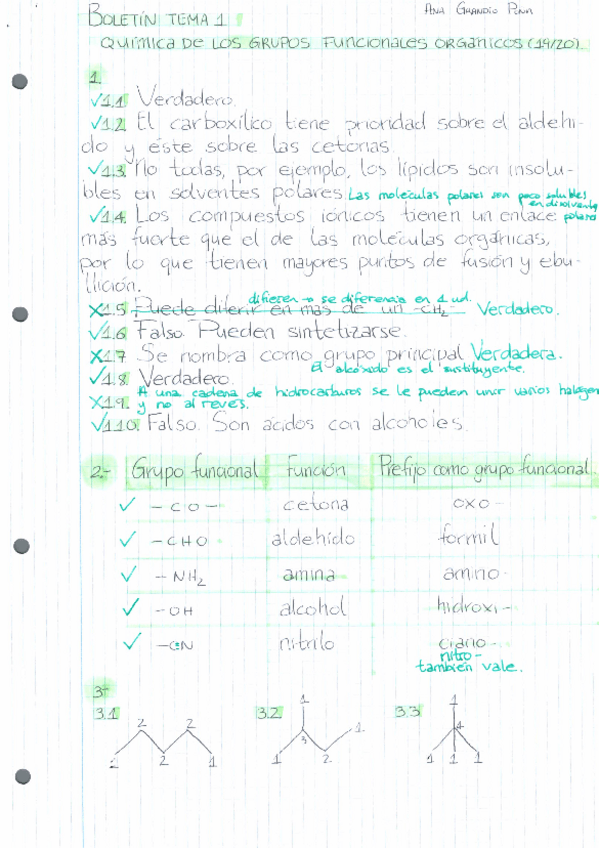 Ana Grandío Pena
BOLETÍN TEMA 1
QUÍMICA DE LOS GRUPOS FUNCIONALES ORGÁNICOS (19/20)
1.
✓1.1. Verdadero.
✓1.2. El carboxílico tiene prioridad sobre el aldehí-
do y éste sobre las cetonas.
✓1.3. No todas, por ejemplo, los lípidos son insolu-
bles en solventes polares. Las moléculas polares son poco solubles
en disolvente
✓1.4. Los compuestos iónicos tienen un enlace polares
más fuerte que el de las moléculas orgánicas,
por lo que tienen mayores puntos de fusión y ebu-
llición.
difieren → se diferencia en 1 ud.
X1.5. Puede diferir en más de un -CH2- Verdadero.
✓1.6. Falso. Pueden sintetizarse.
X1.7. Se nombra como grupo principal Verdadera.
El alcóxido es el sustituyente.
✓1.8. Verdadero.
A una cadena de hidrocarburos se le pueden unir varios halógen
X1.9. y no al revés.
✓1.10. Falso. Son ácidos con alcoholes.
2.- Grupo funcional Función Prefijo como grupo funcional.
✓ -CO- cetona oxo-
✓ -CHO aldehído formil
✓ -NH2 amina amino-
✓ -OH alcohol hidroxi-
✓ -CN nitrilo ciano-
nitro-
también vale.
3-
3.1 3.2 3.3
1 1
2 2 1 4
3
1 2 1 1 2 1 1 1